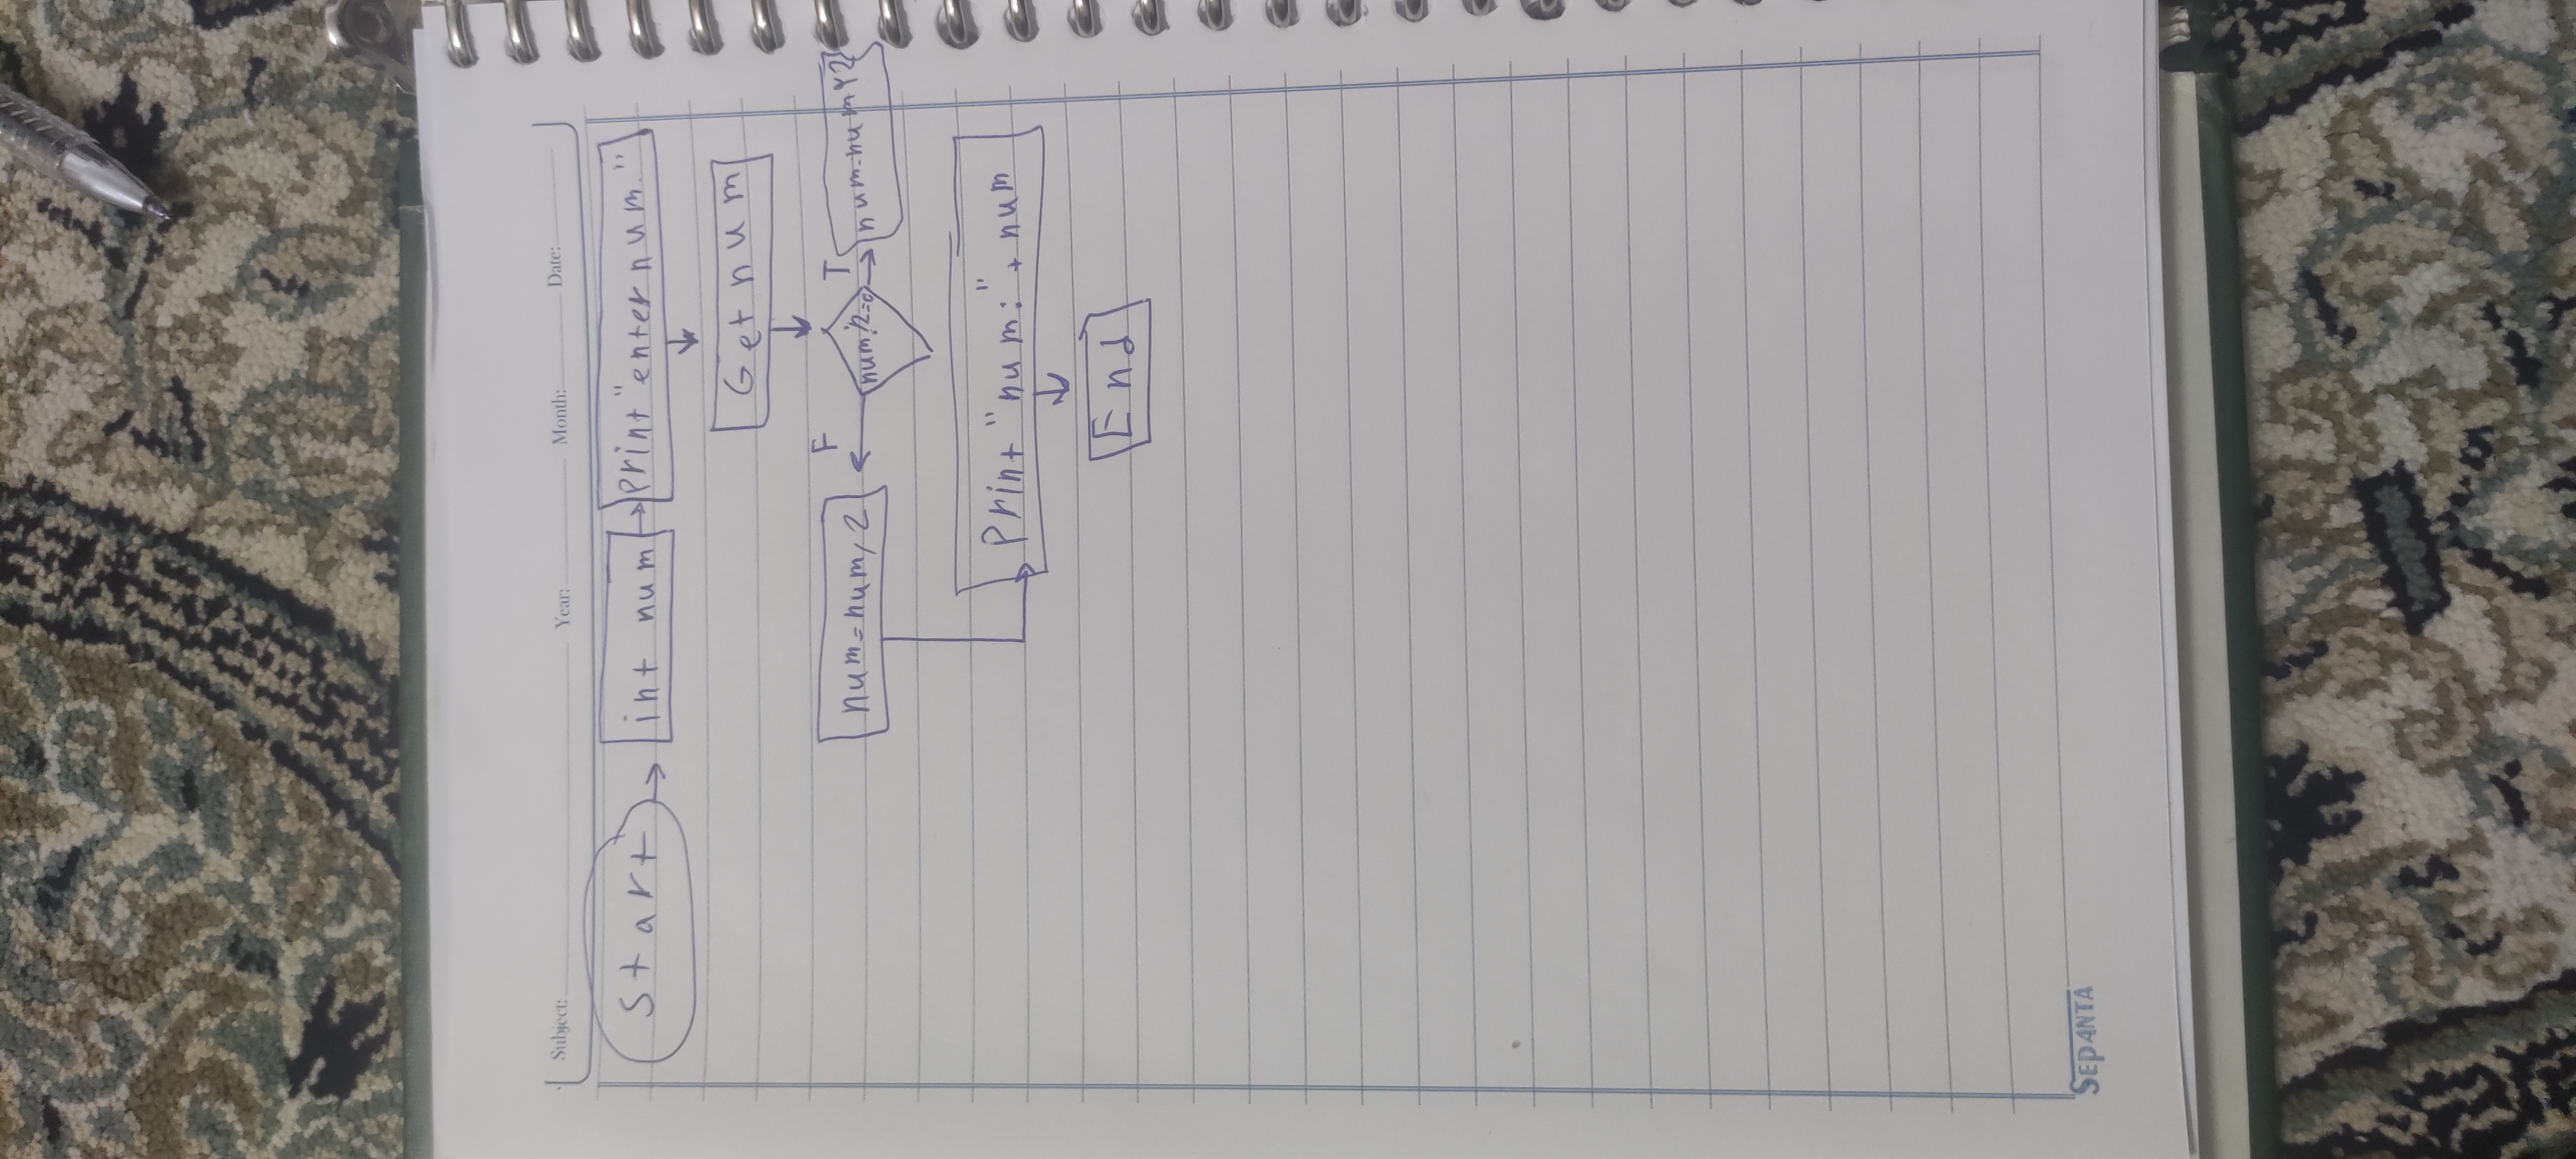 Subject: Year: Month: Date:
Start int num Print "enter num."
Get num
F T
num=num/2 num%2=0 num=num*2
Print "num:"+ num
End
SEPANTA